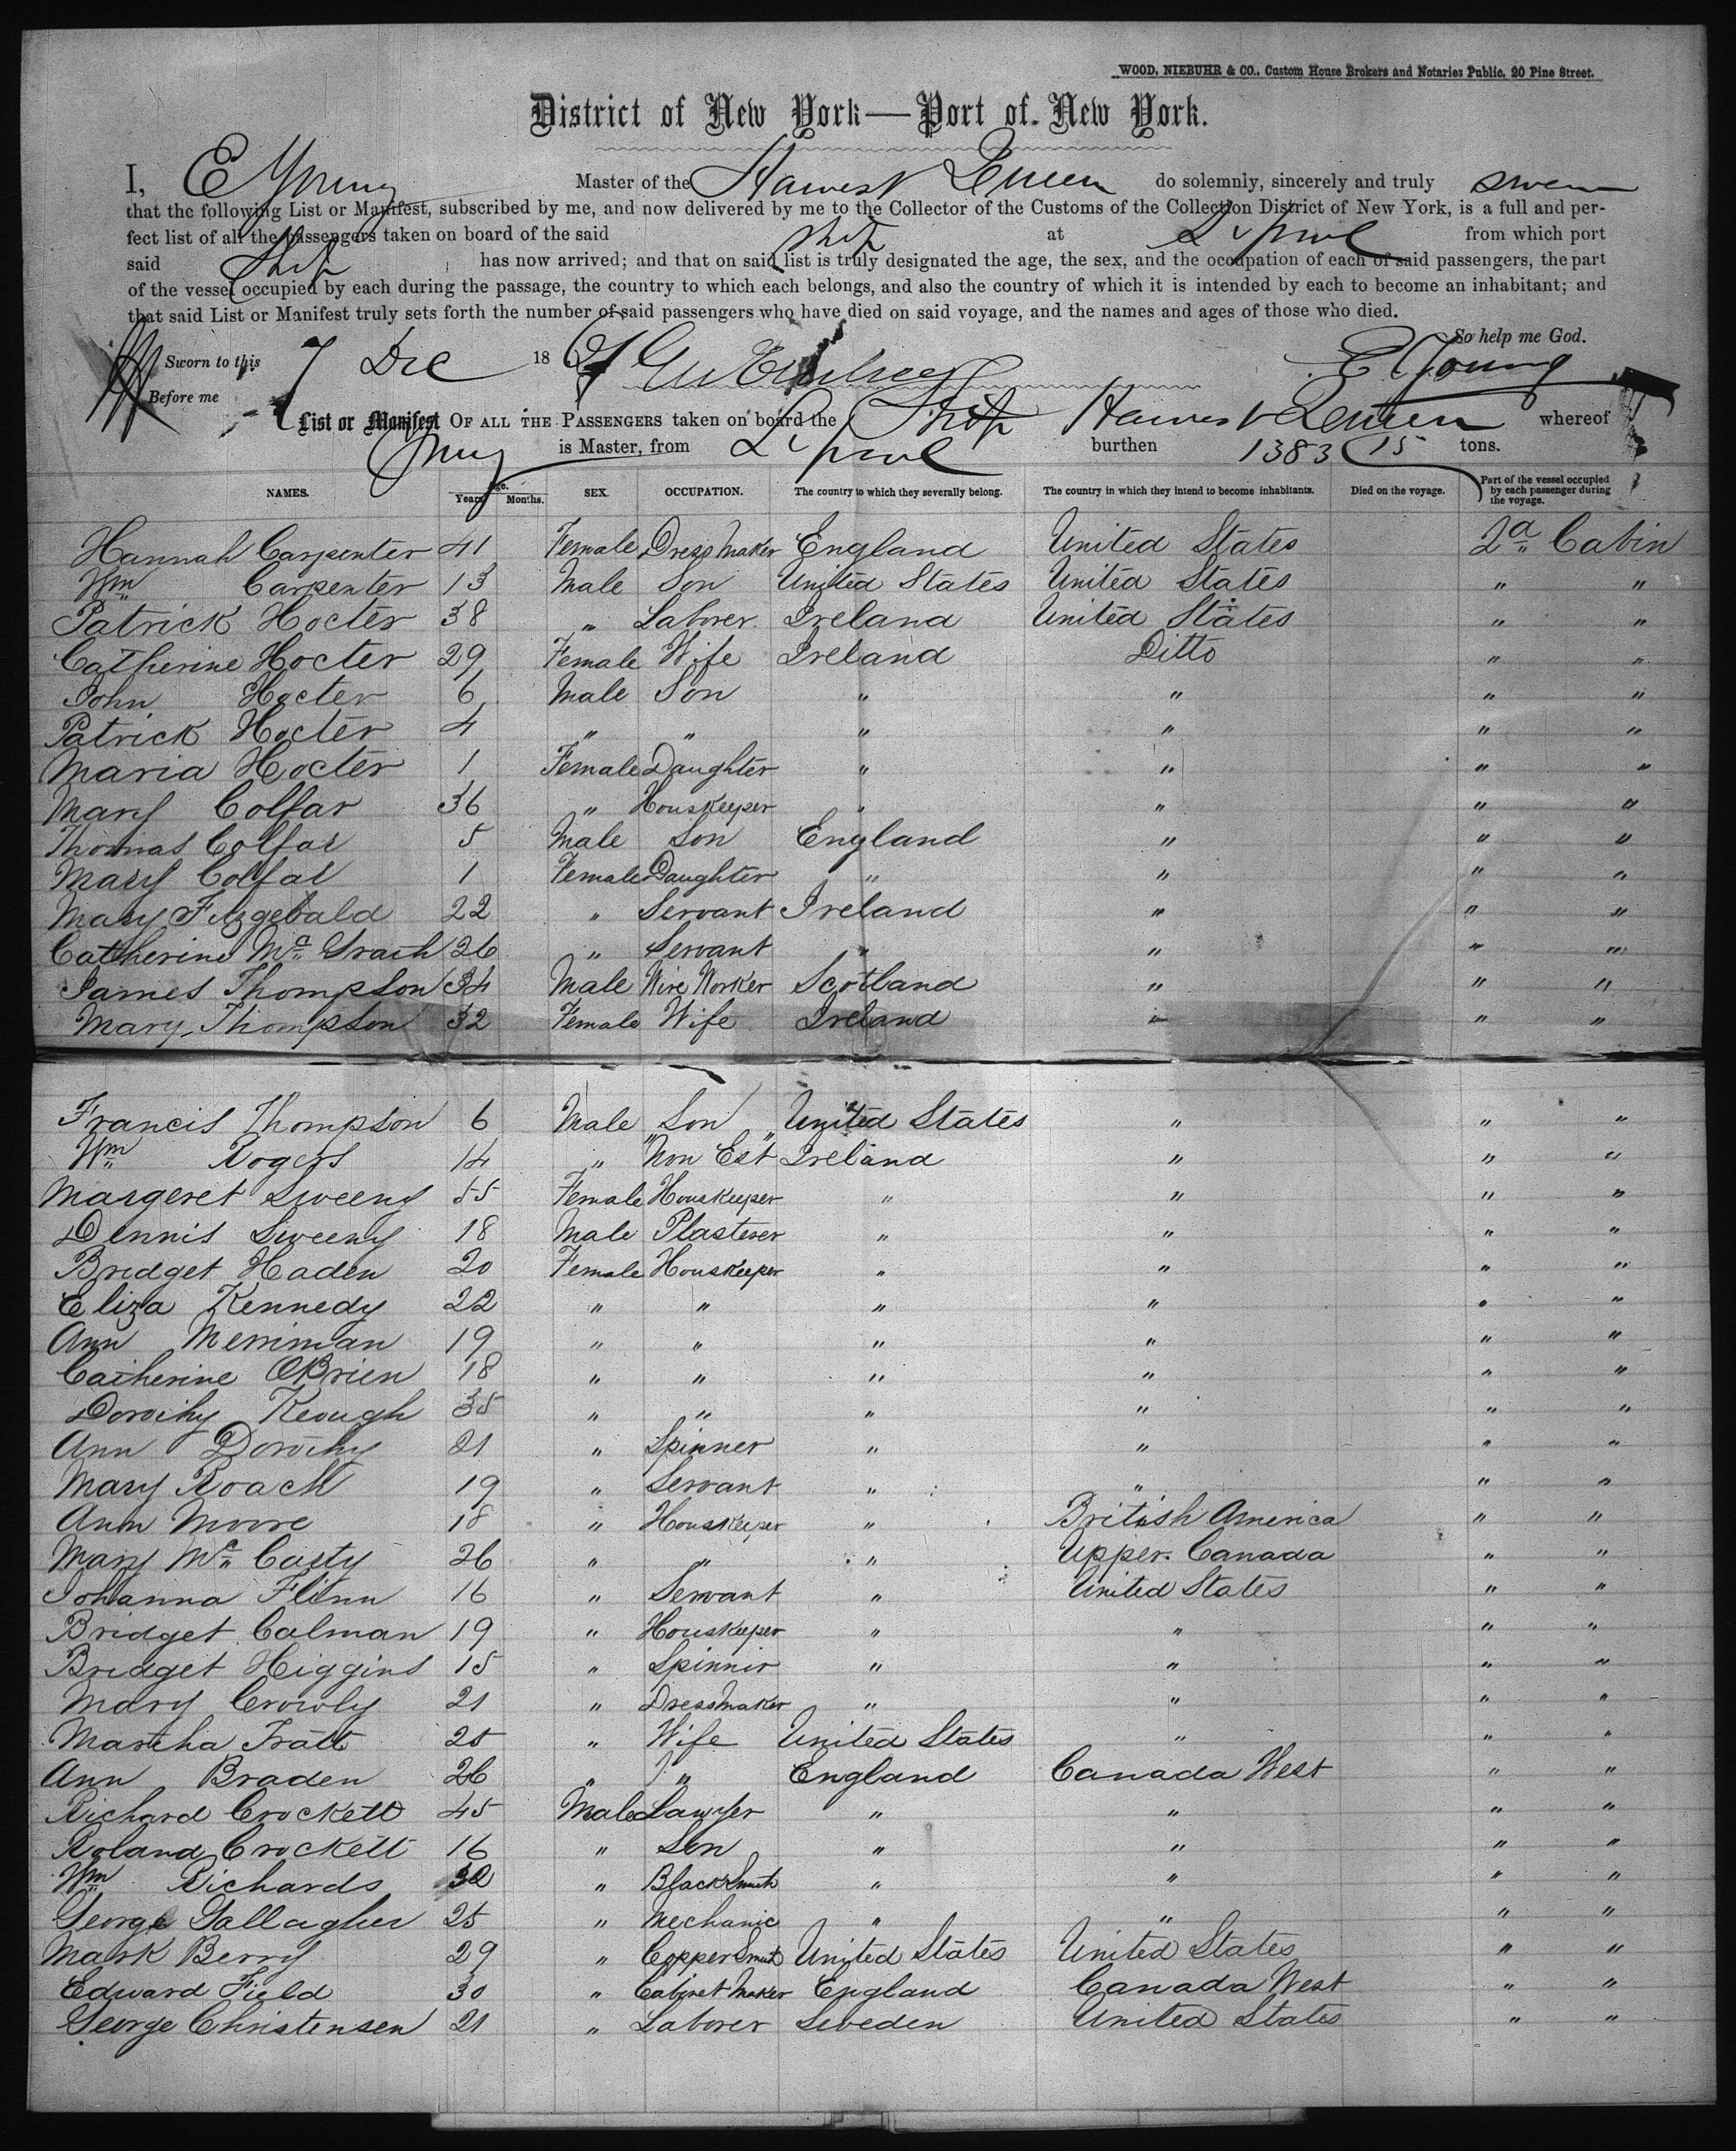 WOOD, NIEBUHR & CO., Custom House Brokers and Notaries Public, 20 Pine Street.
District of New York—Port of New York.
I, E Young Master of the Harvest Queen do solemnly, sincerely and truly swear
that the following List or Manifest, subscribed by me, and now delivered by me to the Collector of the Customs of the Collection District of New York, is a full and per-
fect list of all the passengers taken on board of the said Ship at L'pool from which port
said Ship has now arrived; and that on said list is truly designated the age, the sex, and the occupation of each of said passengers, the part
of the vessel occupied by each during the passage, the country to which each belongs, and also the country of which it is intended by each to become an inhabitant; and
that said List or Manifest truly sets forth the number of said passengers who have died on said voyage, and the names and ages of those who died.
So help me God.
Sworn to this 7 Dec 18 E Young
Before me
List or Manifest OF ALL THE PASSENGERS taken on board the Ship Harvest Queen whereof
Young is Master, from L'pool burthen 1383 15 tons.
NAMES. Age. Years. Months. SEX. OCCUPATION. The country to which they severally belong. The country in which they intend to become inhabitants. Died on the voyage. Part of the vessel occupied by each passenger during the voyage.
Hannah Carpenter 41 Female Dress Maker England United States 2d Cabin
Wm Carpenter 13 Male Son United States United States " "
Patrick Hocter 38 " Laborer Ireland United States " "
Catherine Hocter 29 Female Wife Ireland Ditto " "
John Hocter 6 Male Son " " " "
Patrick Hocter 4 " " " " " "
Maria Hocter 1 Female Daughter " " " "
Mary Colfar 36 " Houskeeper " " " "
Thomas Colfar 5 Male Son England " " "
Mary Colfar 1 Female Daughter " " " "
Mary Fitzgebald 22 " Servant Ireland " " "
Catherine Mc Grath 26 " Servant " " " "
James Thompson 34 Male Wire Worker Scotland " " "
Mary Thompson 32 Female Wife Ireland " " "
Francis Thompson 6 Male Son United States " " "
Wm Rogers 14 " "Non Est" Ireland " " "
Margeret Sweeny 55 Female Houskeeper " " " "
Dennis Sweeny 18 Male Plasterer " " " "
Bridget Haden 20 Female Houskeeper " " " "
Eliza Kennedy 22 " " " " " "
Ann Merriman 19 " " " " " "
Catherine OBrien 18 " " " " " "
Dorothy Keough 35 " " " " " "
Ann Dorothy 21 " Spinner " " " "
Mary Roach 19 " Servant " " " "
Ann Moore 18 " Houskeeper " British America " "
Mary Mc Casty 26 " " " Upper Canada " "
Johanna Flinn 16 " Servant " United States " "
Bridget Calman 19 " Houskeeper " " " "
Bridget Higgins 15 " Spinnir " " " "
Mary Crowly 21 " Dressmaker " " " "
Martha Tratt 25 " Wife United States " " "
Ann Braden 26 " " England Canada West " "
Richard Crockett 45 Male Lawyer " " " "
Roland Crockett 16 " Son " " " "
Wm Richards 30 " BlackSmith " " " "
George Gallagher 25 " Mechanic " " " "
Mark Berry 29 " CopperSmith United States United States " "
Edward Field 30 " Cabinet Maker England Canada West " "
George Christensen 21 " Laborer Sweden United States " "